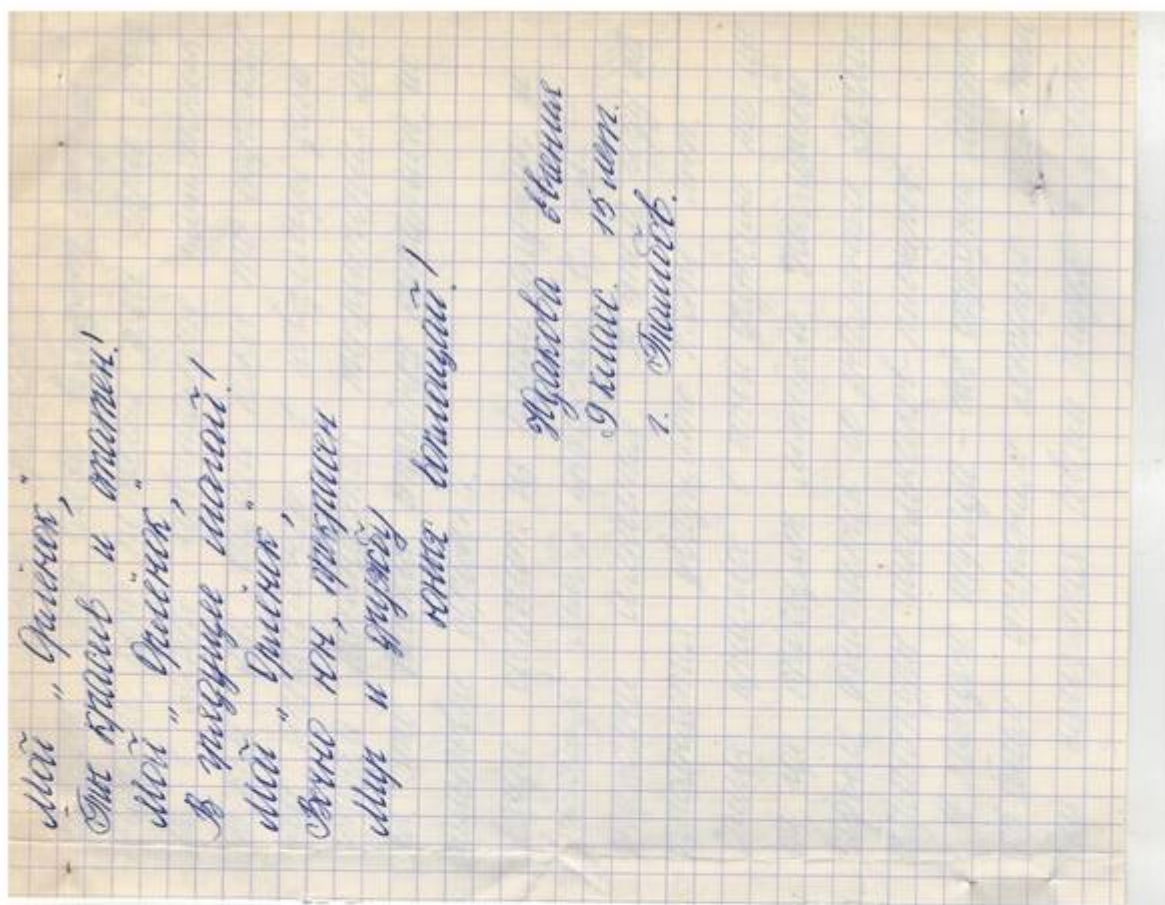 Мой „Орлёнок",
Так красив и статен!
Мой „Орлёнок",
В грядущее шагай!
Мой „Орлёнок",
Вечно юн, прекрасен
Мир и дружбу
юных воплощай!
9 класс. 15 лет.
г.